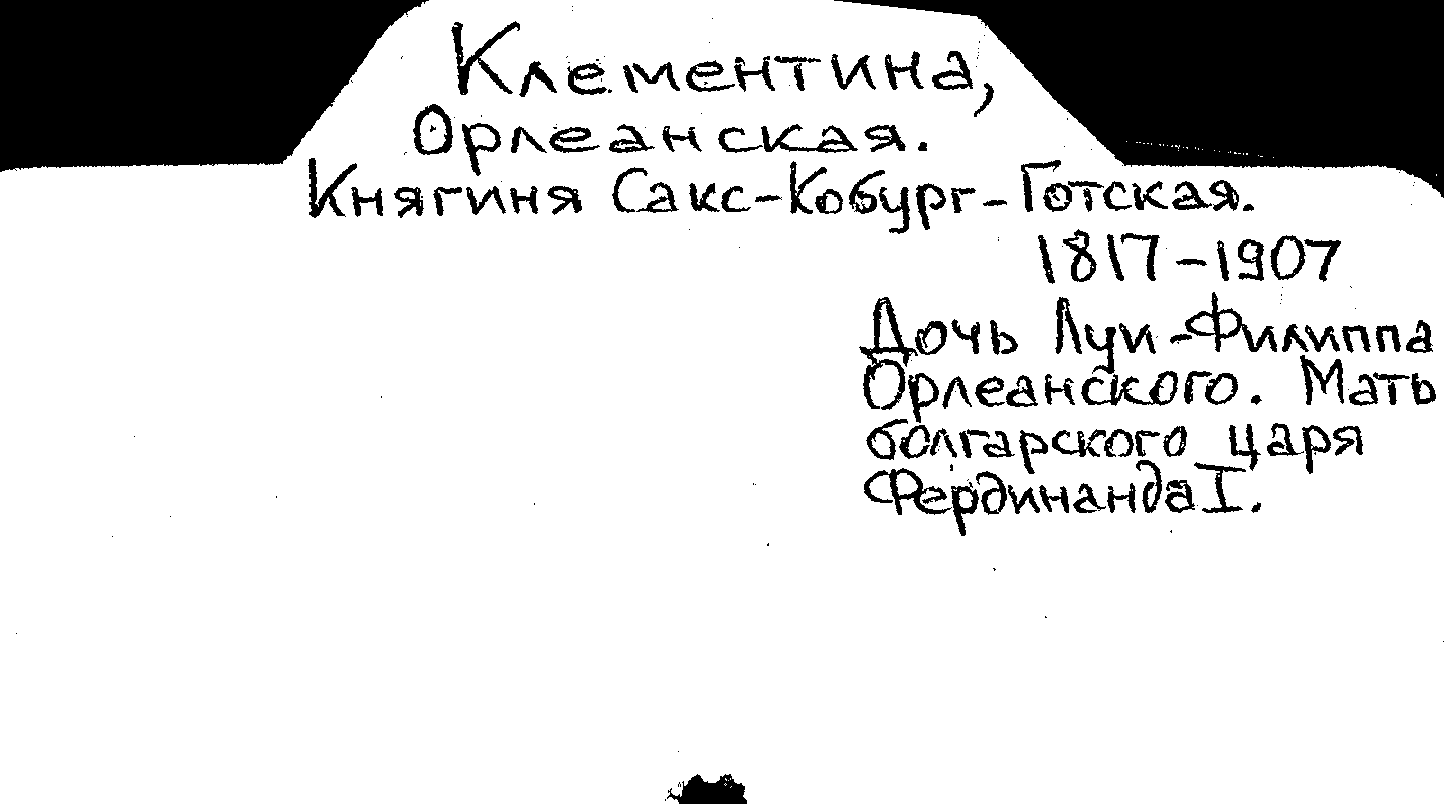 Клементина,
Орлеанская.
Княгиня Сакс-Кобург-Готская.
1817-1907
Дочь Луи-Филиппа
Орлеанского. Мать
болгарского царя
Фердинанда I.